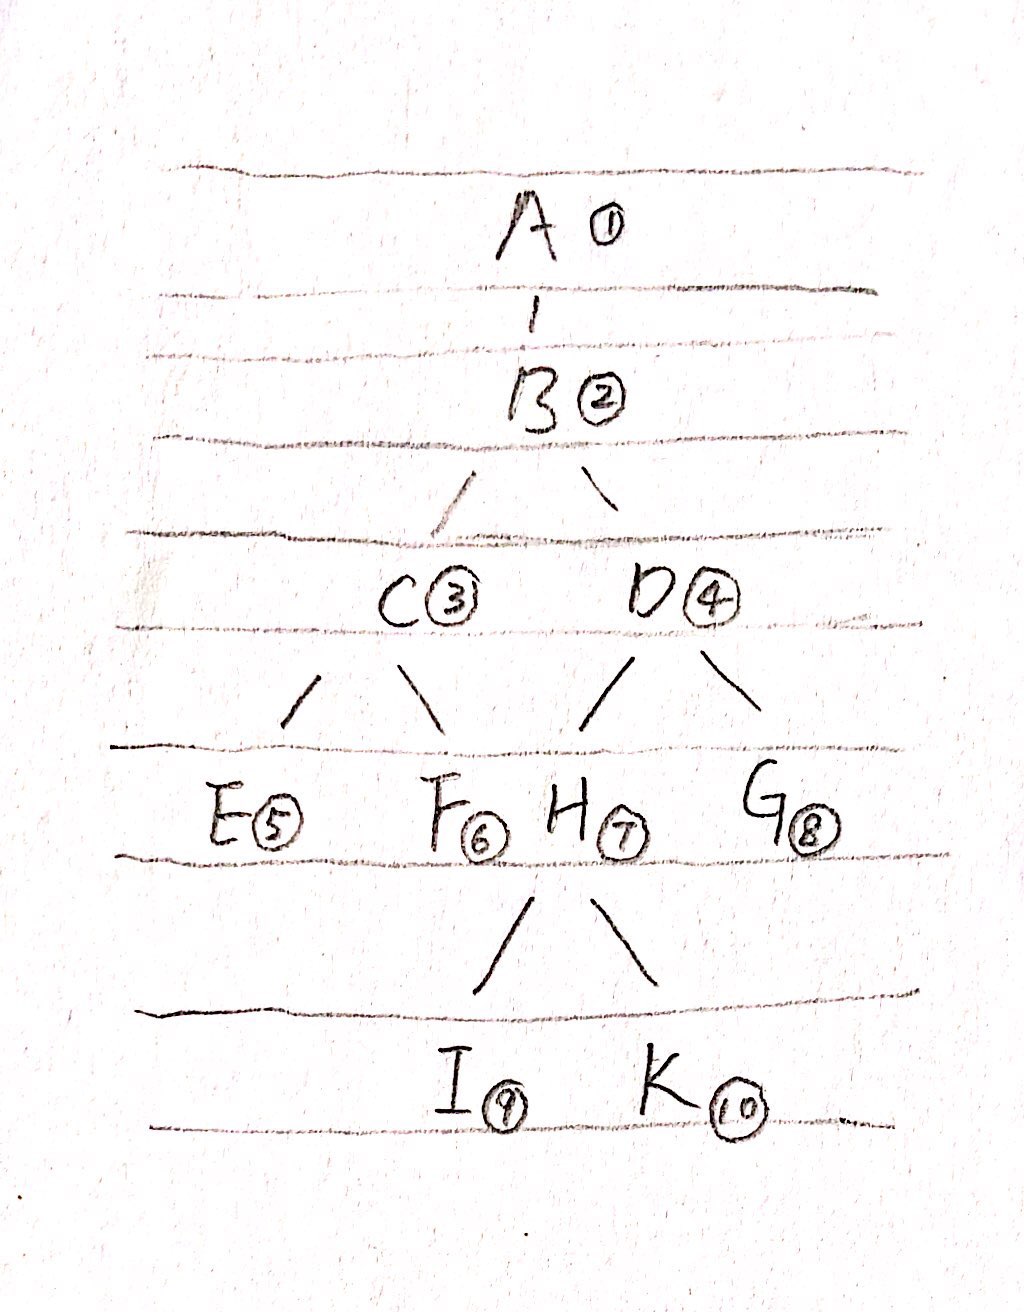 A ①
B ②
C ③ D ④
E ⑤ F ⑥ H ⑦ G ⑧
I ⑨ K ⑩